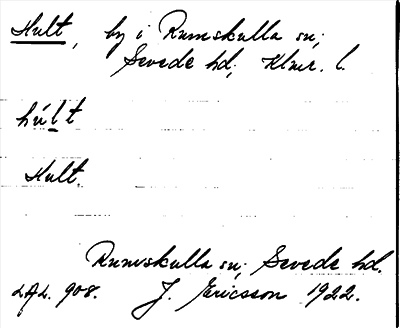 Hult, by i Rumskulla sn;
Sevede hd; Klmr. l.
húlt
Hult.
Rumskulla sn; Sevede hd.
LAL. 908. J. Ericsson 1922.